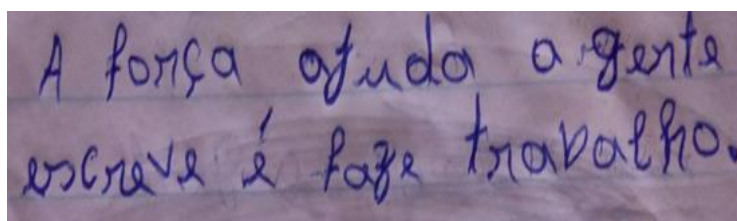 A força ajuda a gente
escreve é faze trabalho.